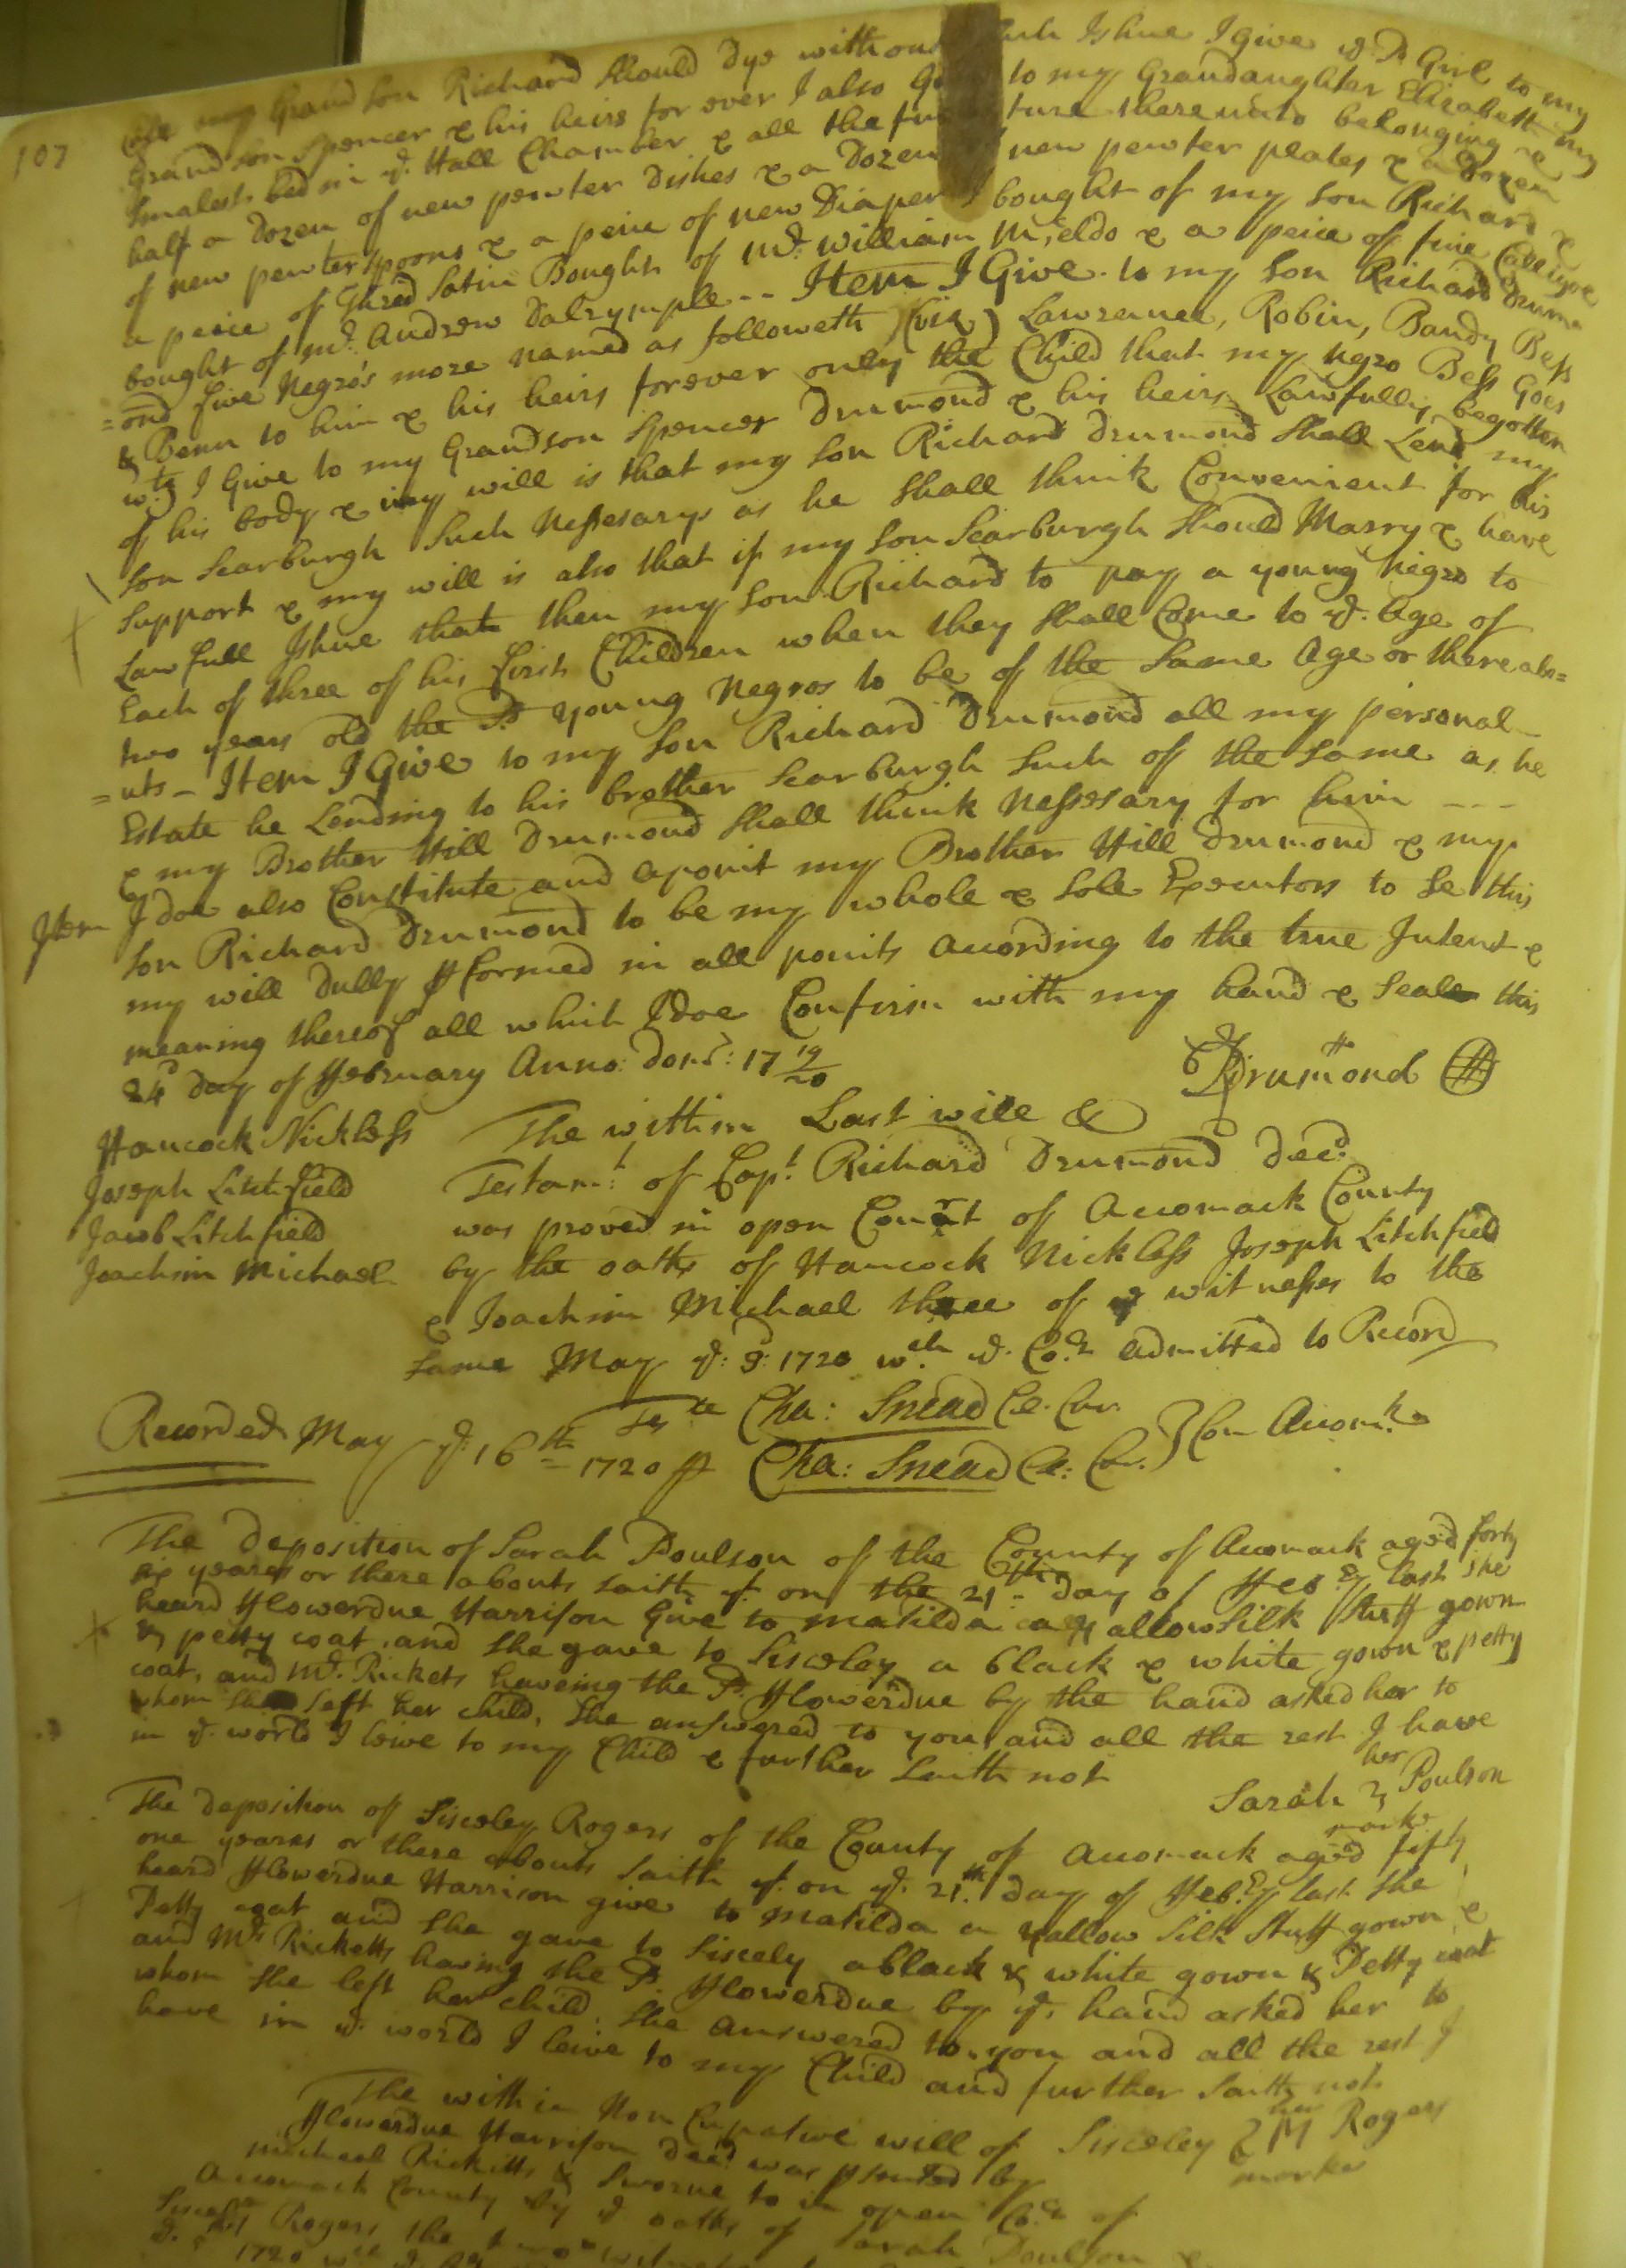 107
my Grand Son Richard Should Dye without such Ishue I Give ye sd Girl to my
Grand Son Spencer & his heirs for ever I also Give to my Grandaughter Elizabeth my
Smalest bed in ye Hall Chamber & all the furniture thereunto belonging &
half a Dozen of new pewter Dishes & a Dozen of new pewter plates & a Dozen
of new pewter spoons & a peice of new Diaper I bought of my Son Richard &
a peice of Satin Bought of Mr William & a peice of fine
bought of Mr Andrew Dalrymple -- Item I Give to my Son Richard Drum
=ond five Negro's more named as followeth (viz) Lawrance, Robin, Bandy Bess
& Benn to him & his heirs forever only the Child that my Negro Bess Goes
wth I Give to my Grandson Spencer Drumond & his heirs Lawfully begotten
of his body & my will is that my Son Richard Drumond Shall Lend my
Son Scarburgh Such Nessesarys as he Shall think Convenient for his
Support & my will is also that if my Son Scarburgh Should Marry & have
Lawfull Ishue that then my Son Richard to pay a young Negro to
Each of three of his first Children when they Shall Come to ye Age of
two years old the sd young Negros to be of the Same Age or thereabo=
=uts - Item I Give to my Son Richard Drumond all my personal
Estate he Lending to his brother Scarburgh Such of the Same as he
& my Brother Hill Drumond Shall think Nessesary for him ---
Item I doe also Constitute and apoint my Brother Hill Drumond & my
Son Richard Drumond to be my whole & Sole Executors to Se this
my will Dully pformed in all points according to the true Intent &
meaning thereof all which I doe Confirm with my hand & Seale this
24d Day of ffebruary Anno: Dom: 17 19/20
RDrumond
Hancock Nickless
Joseph Litchfield
Jacob Litchfield
Joachim Michael
The within Last will &
Testamt of Capt Richard Drumond Decd
was proved in open Court of Accomack County
by the oaths of Hancock Nickless Joseph Litchfield
& Joachim Michael three of ye witnesses to the
Same May ye: 3: 1720 wch ye Cort admitted to Record
Teste Cha: Snead Cl. Cur.
Recorded May ye 16th 1720 p Cha: Snead Cl: Cur. } Com Accomk
The Deposition of Sarah Poulson of the County of Accomack aged forty
six yeares or there abouts saith yt on the 21th Day of ffeb:ry last she
heard fflowerdue Harrison Give to Matilda a yallow Silk Stuff gown
& petty coat, and she gave to Sisceley a black & white gown & petty
coat, and Mr. Rickets haveing the sd. fflowerdue by the hand asked her to
whom she left her child, She answered to you and all the rest I have
in ye world I leive to my Child & further Saith not
Sarah her mark Poulson
The Deposition of Sisceley Rogers of the County of Accomack aged fifty
one yeares or there abouts Saith yt on ye 21th day of ffeb:ry last She
heard fflowerdue Harrison give to Matilda a yallow Silk Stuff gown &
Petty coat and She gave to Siscely a black & white gown & Petty coat
and Mr Ricketts having the sd. fflowerdue by ye hand asked her to
whom She left her child, She answered to you and all the rest I
have in ye world I leive to my Child and further Saith not
Sisceley her M marke Rogers
The within Non Cupative will of
fflowerdue Harrison Decd was psented by
Micheal Ricketts & Sworne to in open Cort of
Accomack County by ye oaths of Sarah Poulson &
Siscely Rogers the two witnesses
1720 wch ye